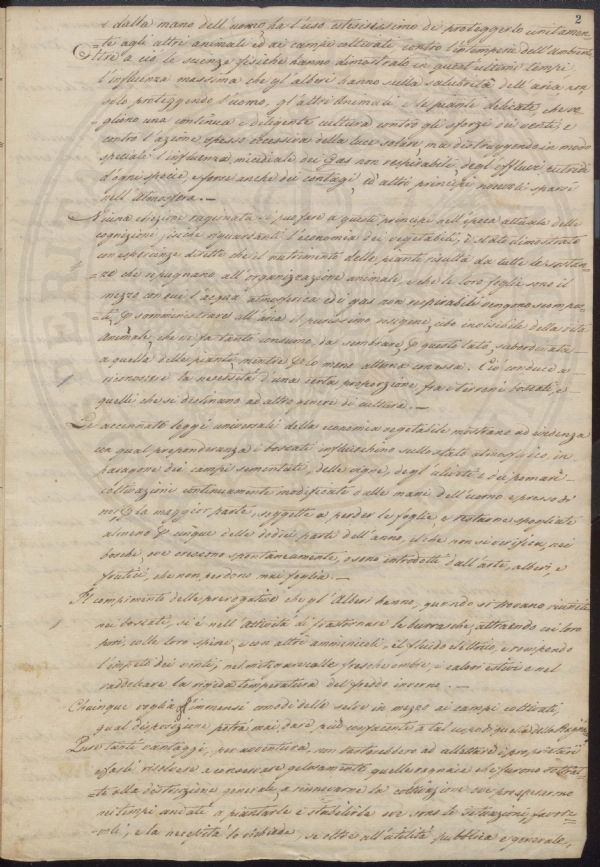 2
e dalla mano dell'uomo, ha l'uso estesissimo di proteggerlo unitamen=
=te agli altri animali ed ai campi coltivati, contro l'intemperie dell'Ambiente.
Oltre a ciò le scienze fisiche hanno dimostrato in quest'ultimi tempi
l'influenza massima che gl'alberi hanno sulla salubrità dell'aria, non
solo proteggendo l'uomo, gl'altri animali e le piante delicate, che vo=
=gliono una continua e diligente cultura contro gli sforzi dei venti, e
contro l'azione spesso eccessiva della luce solare, ma distruggendo in modo
speciale l'influenza micidiale dei Gas non respirabili, degl'effluvi putridi
d'ogni specie, e forse anche dei contagi, ed altri principi nocevoli sparsi
nell'Atmosfera. —
Niuna obiezione ragionata si può fare a questi principi nell'epoca attuale delle
cognizioni fisiche riguardanti l'economia dei vegetabili; è stato dimostrato
con esperienze dirette che il nutrimento delle piante risulta da tutte le sostan=
=ze che ripugnano all'organizzazione animale, e che le loro foglie sono il
mezzo con cui l'acqua atmosferica ed i gas non respirabili vengono scompo=
=sti, p somministrare all'aria il purissimo ossigene, cibo invisibile della vita
Animale, che ne fa tanto consumo, da sembrare, p questo lato, subordinata
a quella delle piante, mentre p lo meno alterna con essa. Ciò conduce a
riconoscere la necessità d'una certa proporzione fra i terreni boscati, e
quelli che si destinano ad altro genere di cultura. —
Le accennate leggi universali della economia vegetabile mostrano ad evidenza
con qual preponderanza i boscati influiscono sullo stato atmosferico, in
paragone dei campi sementati, delle vigne, degl'uliveti e dei pomari
coltivazioni continuamente modificate dalle mani dell'uomo e presso di
noi p la maggior parte, soggette a perder le foglie e restarne spogliate
almeno p cinque delle dodici parti dell'anno, il che non si verifica, nei
boschi, ove crescono spontaneamente, o sono introdotti dall'arte, alberi, e
frutici, che non perdono mai foglia. —
Il complimento delle prerogative che gl'Alberi hanno, quando si trovano riuniti
nei boscati, si è nell'attività di frastornare le burrasche, attraendo coi loro
pori, colle loro spine, e con altri amminicoli, il fluido elettrico, e rompendo
l'impeto dei venti, nel mitigare colle fresche ombre, i calori estivi e nel
raddolcire la rigida temperatura del freddo inverno. —
Chiunque voglia gl'immensi comodi delle selve in mezzo ai campi coltivati,
qual disposizione potrà mai dare più confacente a tal scopo, di quella delle Ragnaie
Pure tanti vantaggi, per avventura, non basterebbero ad allettare i proprietari
o farli risolvere a conservare gelosamente quelle ragnaie che furono sottrat=
=te alla distruzione generale, a rinnovarne la coltivazione ove prosperarono
nei tempi andati o piantarle e stabilirle ove sono le situazioni favore=
=voli, e la necessità lo richiede, se oltre all'utilità pubblica e generale,